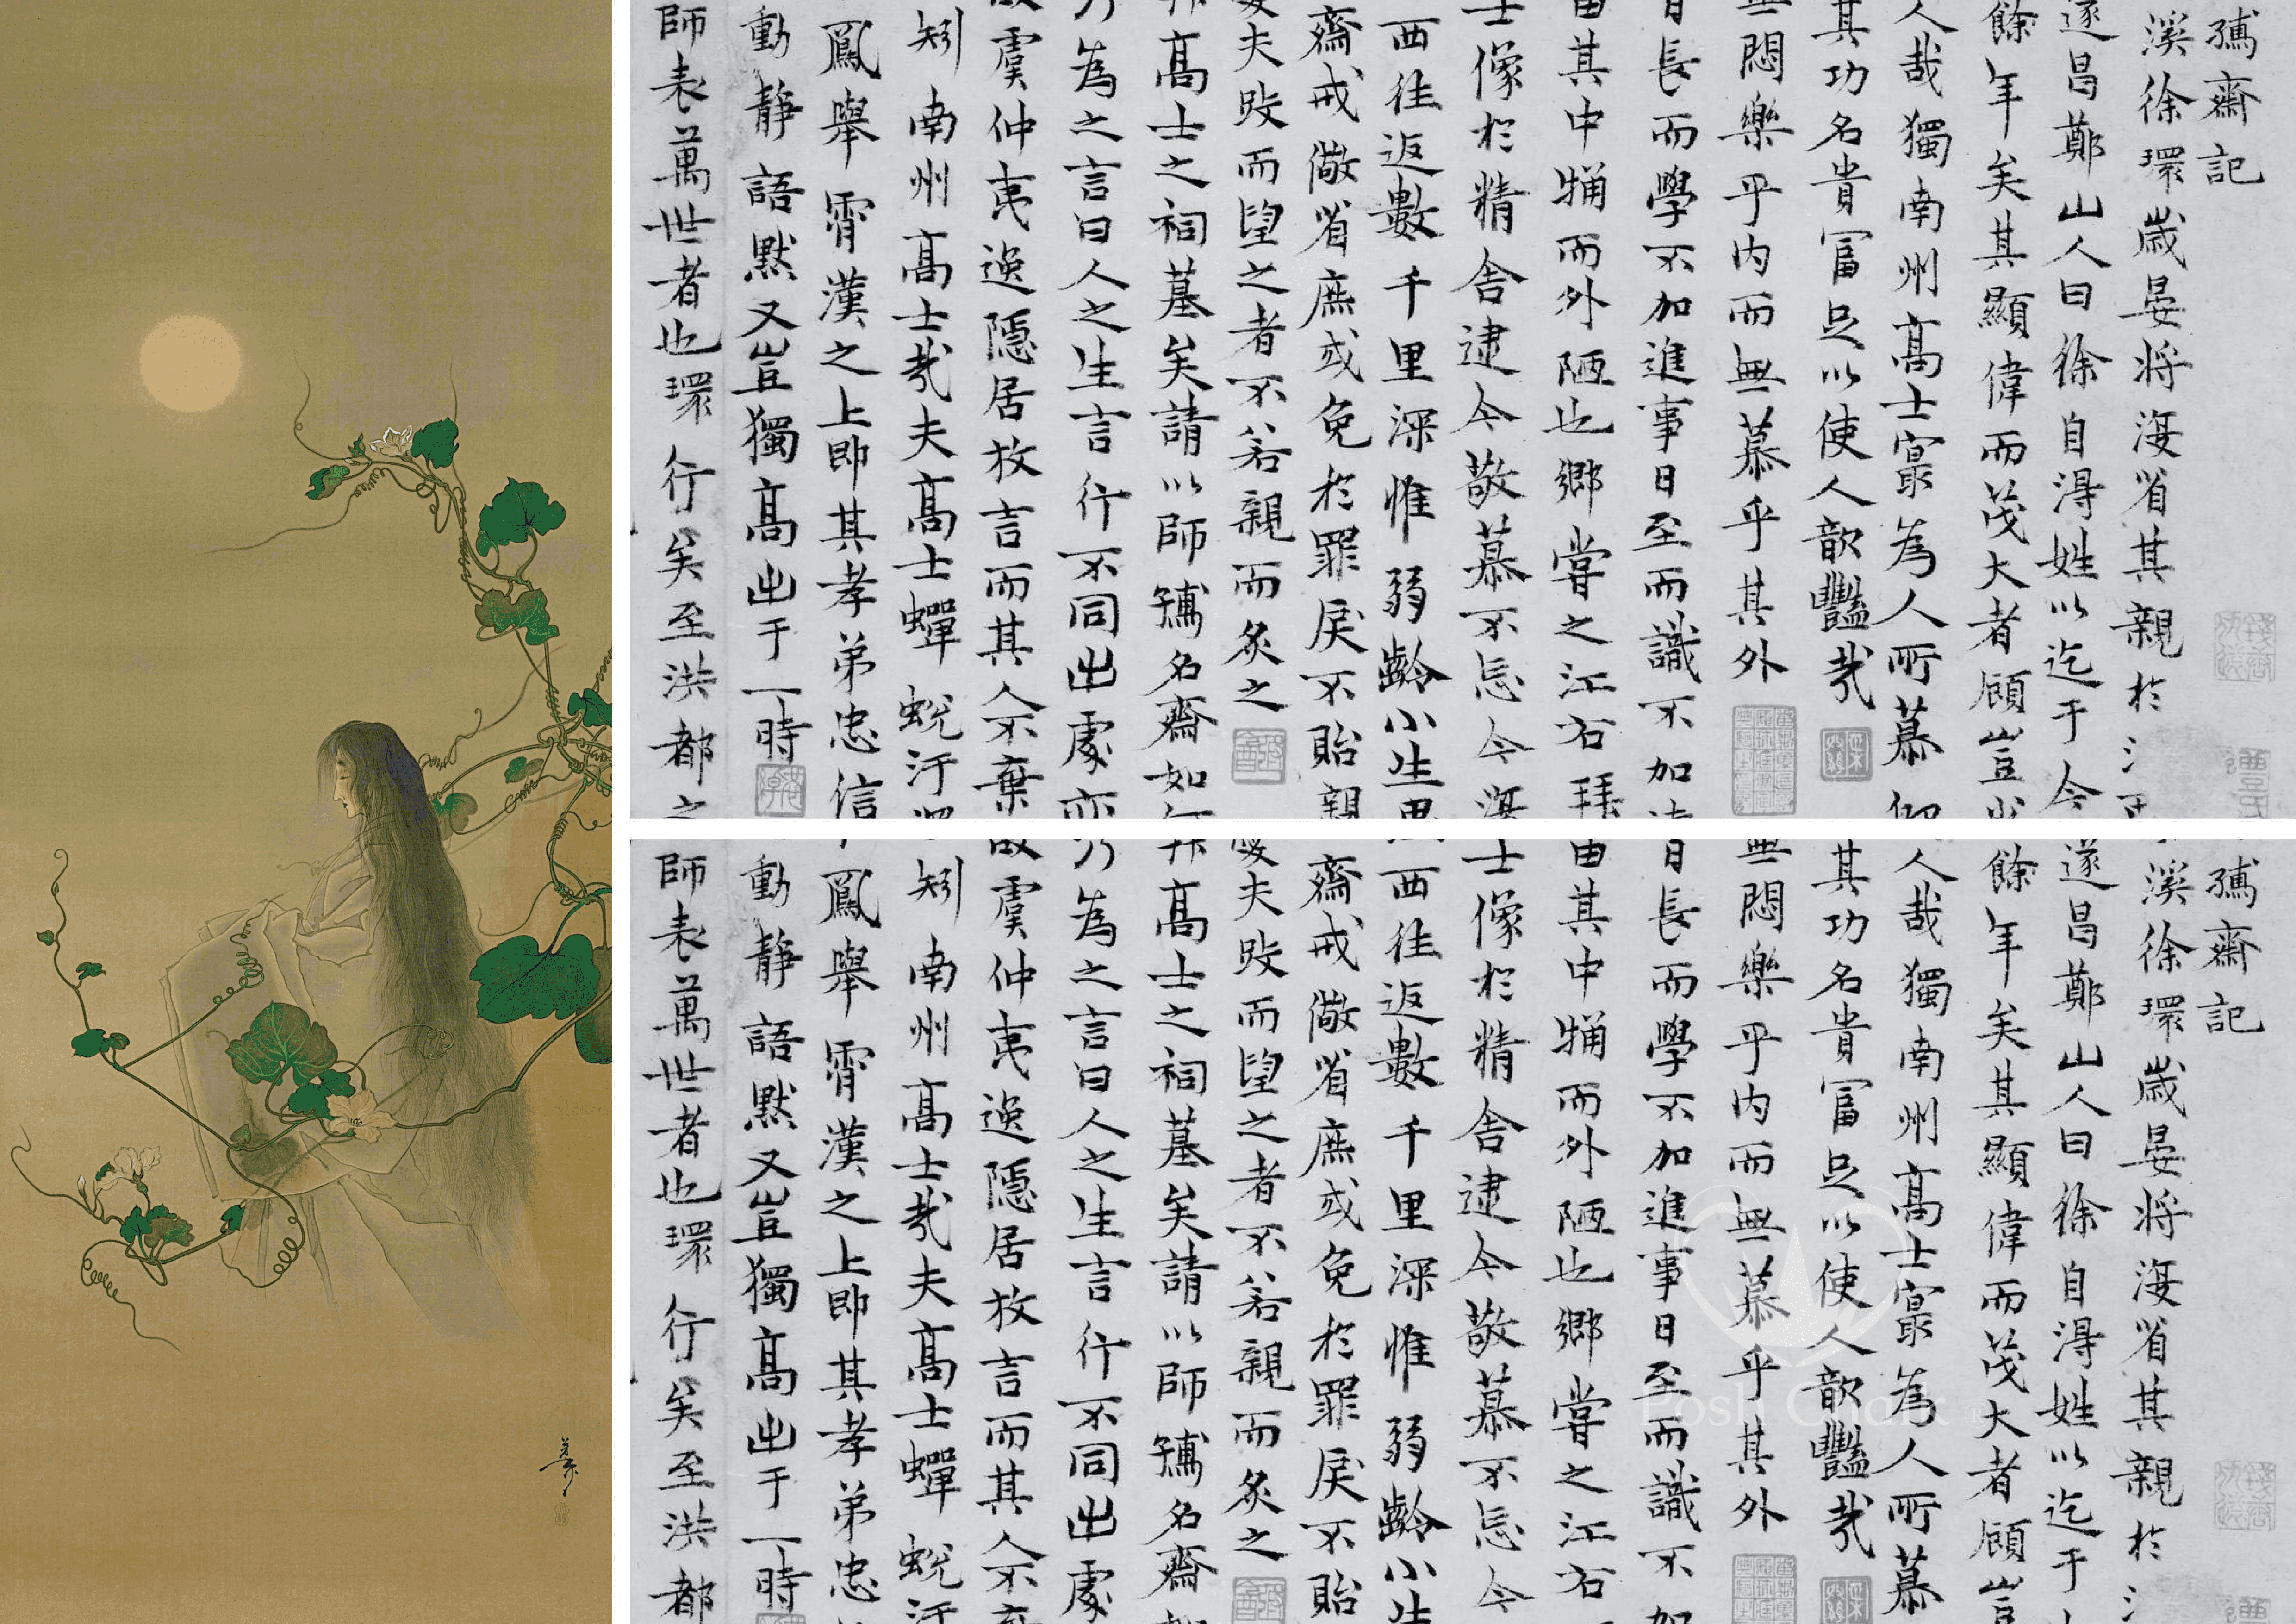 孺齋記
溪徐環歲晏將省其親於
遂昌鄭山人曰徐自得姓以迄于今
餘年矣其顯偉而茂大者顧豈
人哉獨南州高士最為人所慕仰
其功名貴富足以使人歆豔哉
無悶樂乎內而無慕乎其外
日長而學不加進事日至而識不加
由其中而外陋也鄉嘗之江右拜
士像於精舍逮今敬慕不忘今
西往返數千里深惟弱齡小生
齋戒儆省庶或免於罪戾不貽親
夫跂而望之者不若親而炙之
拜高士之祠墓矣請以師孺名齋如何
乃為之言曰人之生言行不同出處
故虞仲夷逸隱居放言而其人不棄
矧南州高士哉夫高士蟬蛻汙
鳳舉霄漢之上即其孝弟忠信
動靜語默又豈獨高出于一時
師表萬世者也環行矣至洪都之
孺齋記
溪徐環歲晏將省其親於
遂昌鄭山人曰徐自得姓以迄于
餘年矣其顯偉而茂大者顧豈
人哉獨南州高士最為人所慕
其功名貴富足以使人歆豔哉
無悶樂乎內而無慕乎其外
日長而學不加進事日至而識不
由其中而外陋也鄉嘗之江右
士像於精舍逮今敬慕不忘今
西往返數千里深惟弱齡小生
齋戒儆省庶或免於罪戾不貽
夫跂而望之者不若親而炙之
拜高士之祠墓矣請以師孺名齋
乃為之言曰人之生言行不同出處
故虞仲夷逸隱居放言而其人不
矧南州高士哉夫高士蟬蛻汙
鳳舉霄漢之上即其孝弟忠
動靜語默又豈獨高出于一時
師表萬世者也環行矣至洪都
Posh Chalk